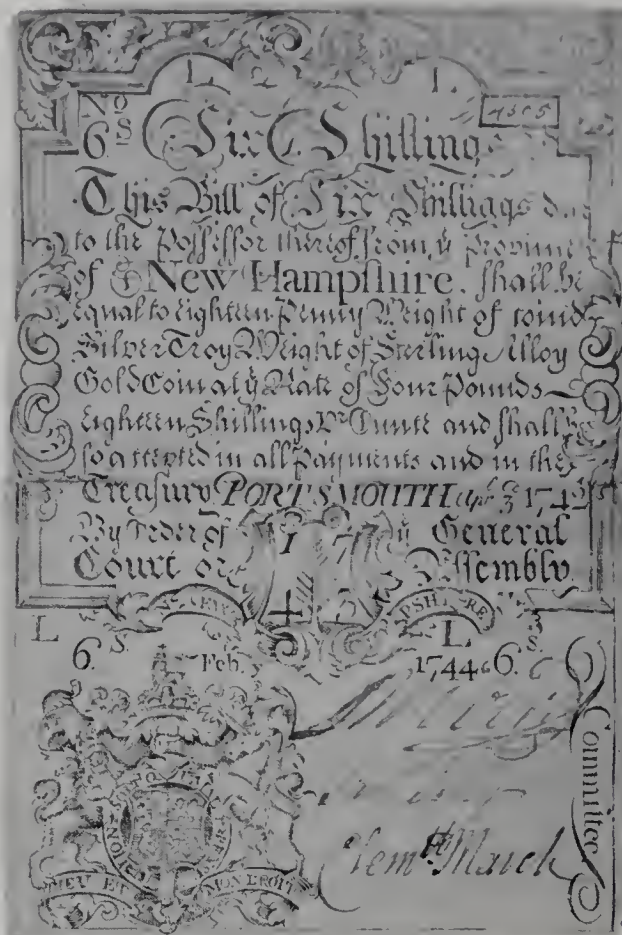 L. L.
No 4505
6.s Six Shillings
This Bill of Six Shilliggs due
to the Possessor thereof from ye Province
of New Hampshire. shall be
equal to eighteen Penny Weight of coind
Silver Troy Weight of Sterling Alloy
Gold Coin at ye Rate of Four Pounds
eighteen Shillings Pr Ounce and shall be
so accepted in all Payments and in the
Treasury PORTSMOUTH 3 174
By Order of ye General
Court or Assembly.
1 7
4
NEW HAMPSHIRE
L L.
6. Feb. 1744 6. 6
HONI SOIT QUI MAL Y PENSE
DIEU ET MON DROIT
Clemt March
Committee